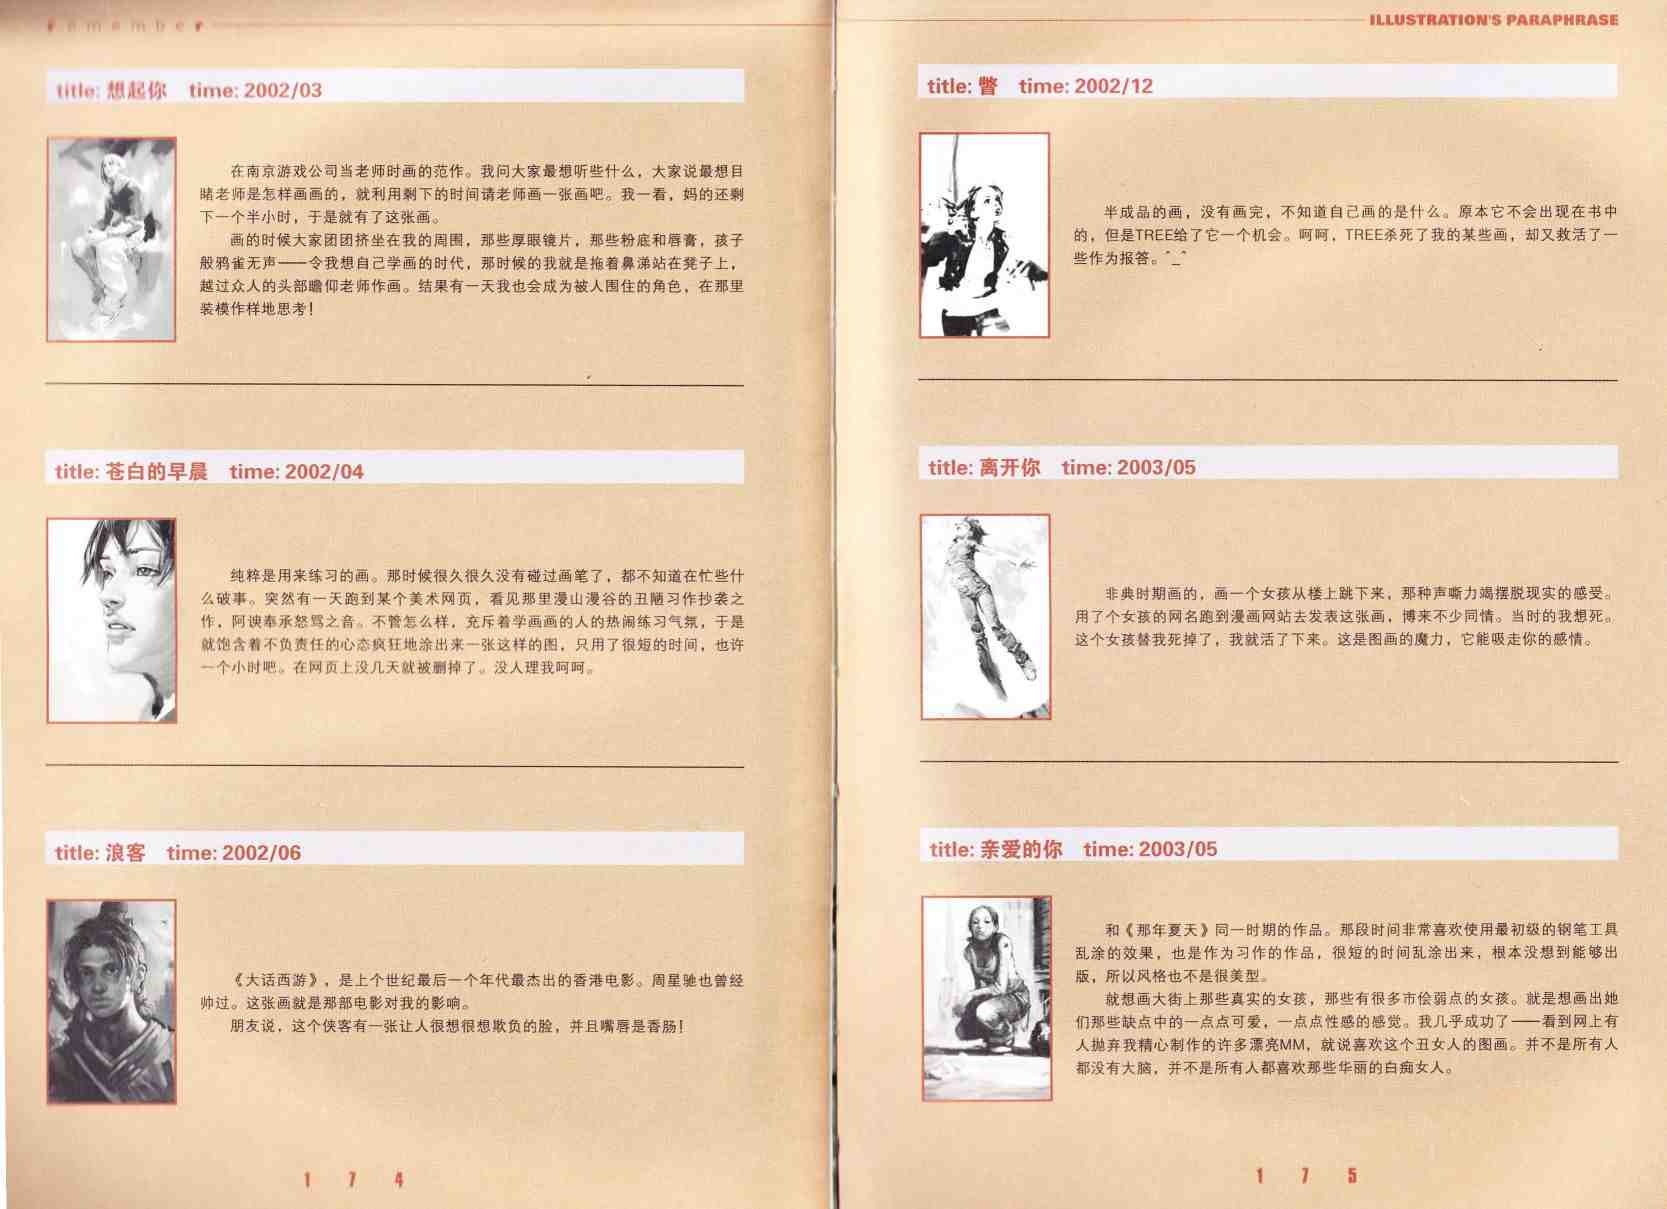 remember
title: 想起你 time: 2002/03
在南京游戏公司当老师时画的范作。我问大家最想听些什么，大家说最想目
睹老师是怎样画画的，就利用剩下的时间请老师画一张画吧。我一看，妈的还剩
下一个半小时，于是就有了这张画。
画的时候大家团团挤坐在我的周围，那些厚眼镜片，那些粉底和唇膏，孩子
般鸦雀无声——令我想自己学画的时代，那时候的我就是拖着鼻涕站在凳子上，
越过众人的头部瞻仰老师作画。结果有一天我也会成为被人围住的角色，在那里
装模作样地思考！
title: 苍白的早晨 time: 2002/04
纯粹是用来练习的画。那时候很久很久没有碰过画笔了，都不知道在忙些什
么破事。突然有一天跑到某个美术网页，看见那里漫山漫谷的丑陋习作抄袭之
作，阿谀奉承怒骂之音。不管怎么样，充斥着学画画的人的热闹练习气氛，于是
就饱含着不负责任的心态疯狂地涂出来一张这样的图，只用了很短的时间，也许
一个小时吧。在网页上没几天就被删掉了。没人理我呵呵。
title: 浪客 time: 2002/06
《大话西游》，是上个世纪最后一个年代最杰出的香港电影。周星驰也曾经
帅过。这张画就是那部电影对我的影响。
朋友说，这个侠客有一张让人很想很想欺负的脸，并且嘴唇是香肠！
174
ILLUSTRATION'S PARAPHRASE
title: 瞥 time: 2002/12
半成品的画，没有画完，不知道自己画的是什么。原本它不会出现在书中
的，但是TREE给了它一个机会。呵呵，TREE杀死了我的某些画，却又救活了一
些作为报答。^_^
title: 离开你 time: 2003/05
非典时期画的，画一个女孩从楼上跳下来，那种声嘶力竭摆脱现实的感受。
用了个女孩的网名跑到漫画网站去发表这张画，博来不少同情。当时的我想死。
这个女孩替我死掉了，我就活了下来。这是图画的魔力，它能吸走你的感情。
title: 亲爱的你 time: 2003/05
和《那年夏天》同一时期的作品。那段时间非常喜欢使用最初级的钢笔工具
乱涂的效果，也是作为习作的作品，很短的时间乱涂出来，根本没想到能够出
版，所以风格也不是很美型。
就想画大街上那些真实的女孩，那些有很多市侩弱点的女孩。就是想画出她
们那些缺点中的一点点可爱，一点点性感的感觉。我几乎成功了——看到网上有
人抛弃我精心制作的许多漂亮MM，就说喜欢这个丑女人的图画。并不是所有人
都没有大脑，并不是所有人都喜欢那些华丽的白痴女人。
175